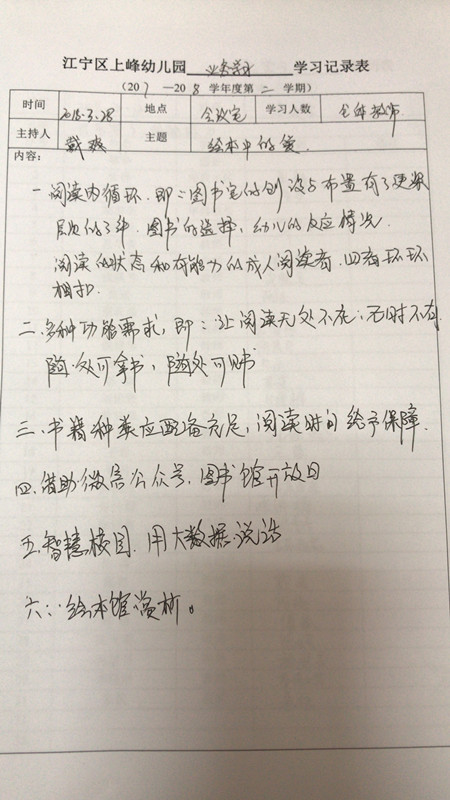 江宁区上峰幼儿园 业务学习 学习记录表
(2017—2018学年度第二学期)
时间 2018.3.28 地点 会议室 学习人数 全体教师
主持人 戴爽 主题 绘本中的爱
内容:
一.阅读内循环.即:图书室的创设与布置有了更深
层次的了解.图书的选择,幼儿的反应情况.
阅读的状态和有能力的成人阅读者.四者环环
相扣.
二.多种功能需求,即:让阅读无处不在,无时不有
随处可拿书,随处可见书
三.书籍种类应配备充足,阅读时间给予保障.
四.借助微信公众号,图书馆开放日
五.智慧校园.用大数据说话
六:绘本馆赏析。